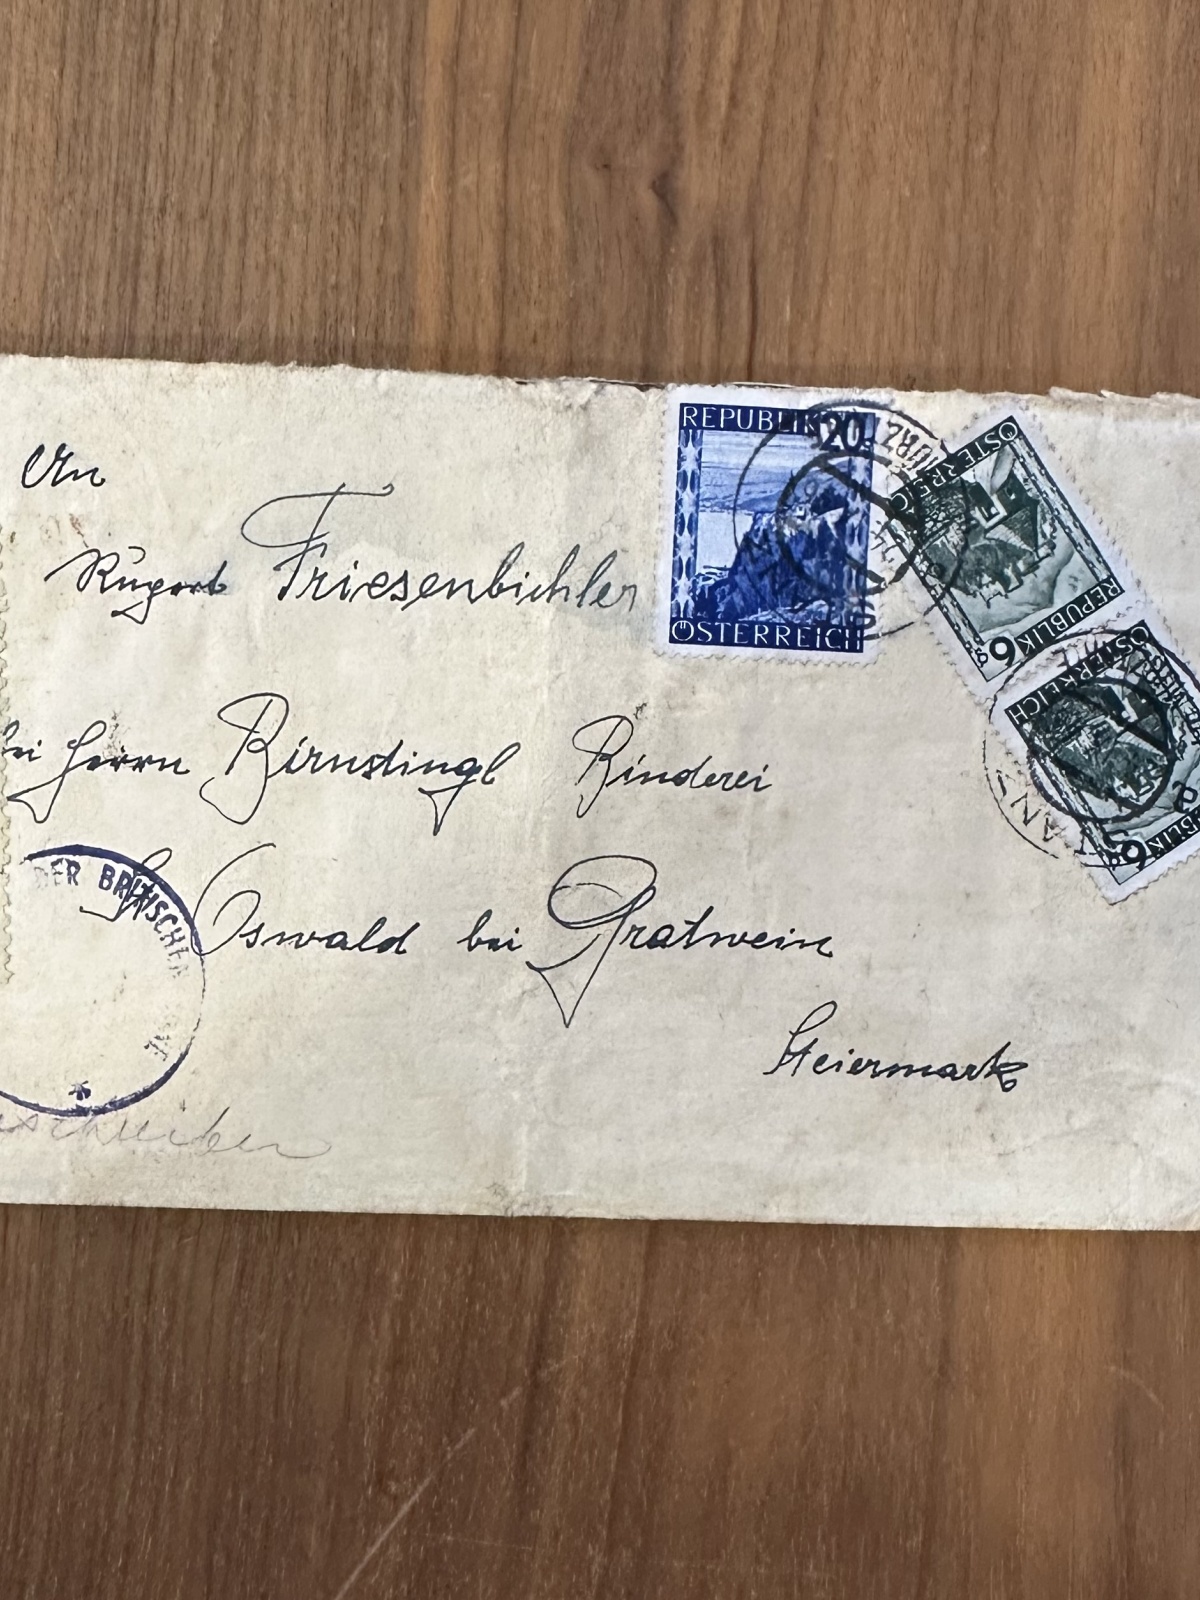 An
Friesenbichler
bei Herrn Birnstingl Binderei
Oswald bei Gratwein
Steiermark
REPUBLIK 20
ÖSTERREICH
ÖSTERREICH
REPUBLIK
6
ÖSTERREICH
6
DER BRITISCHEN